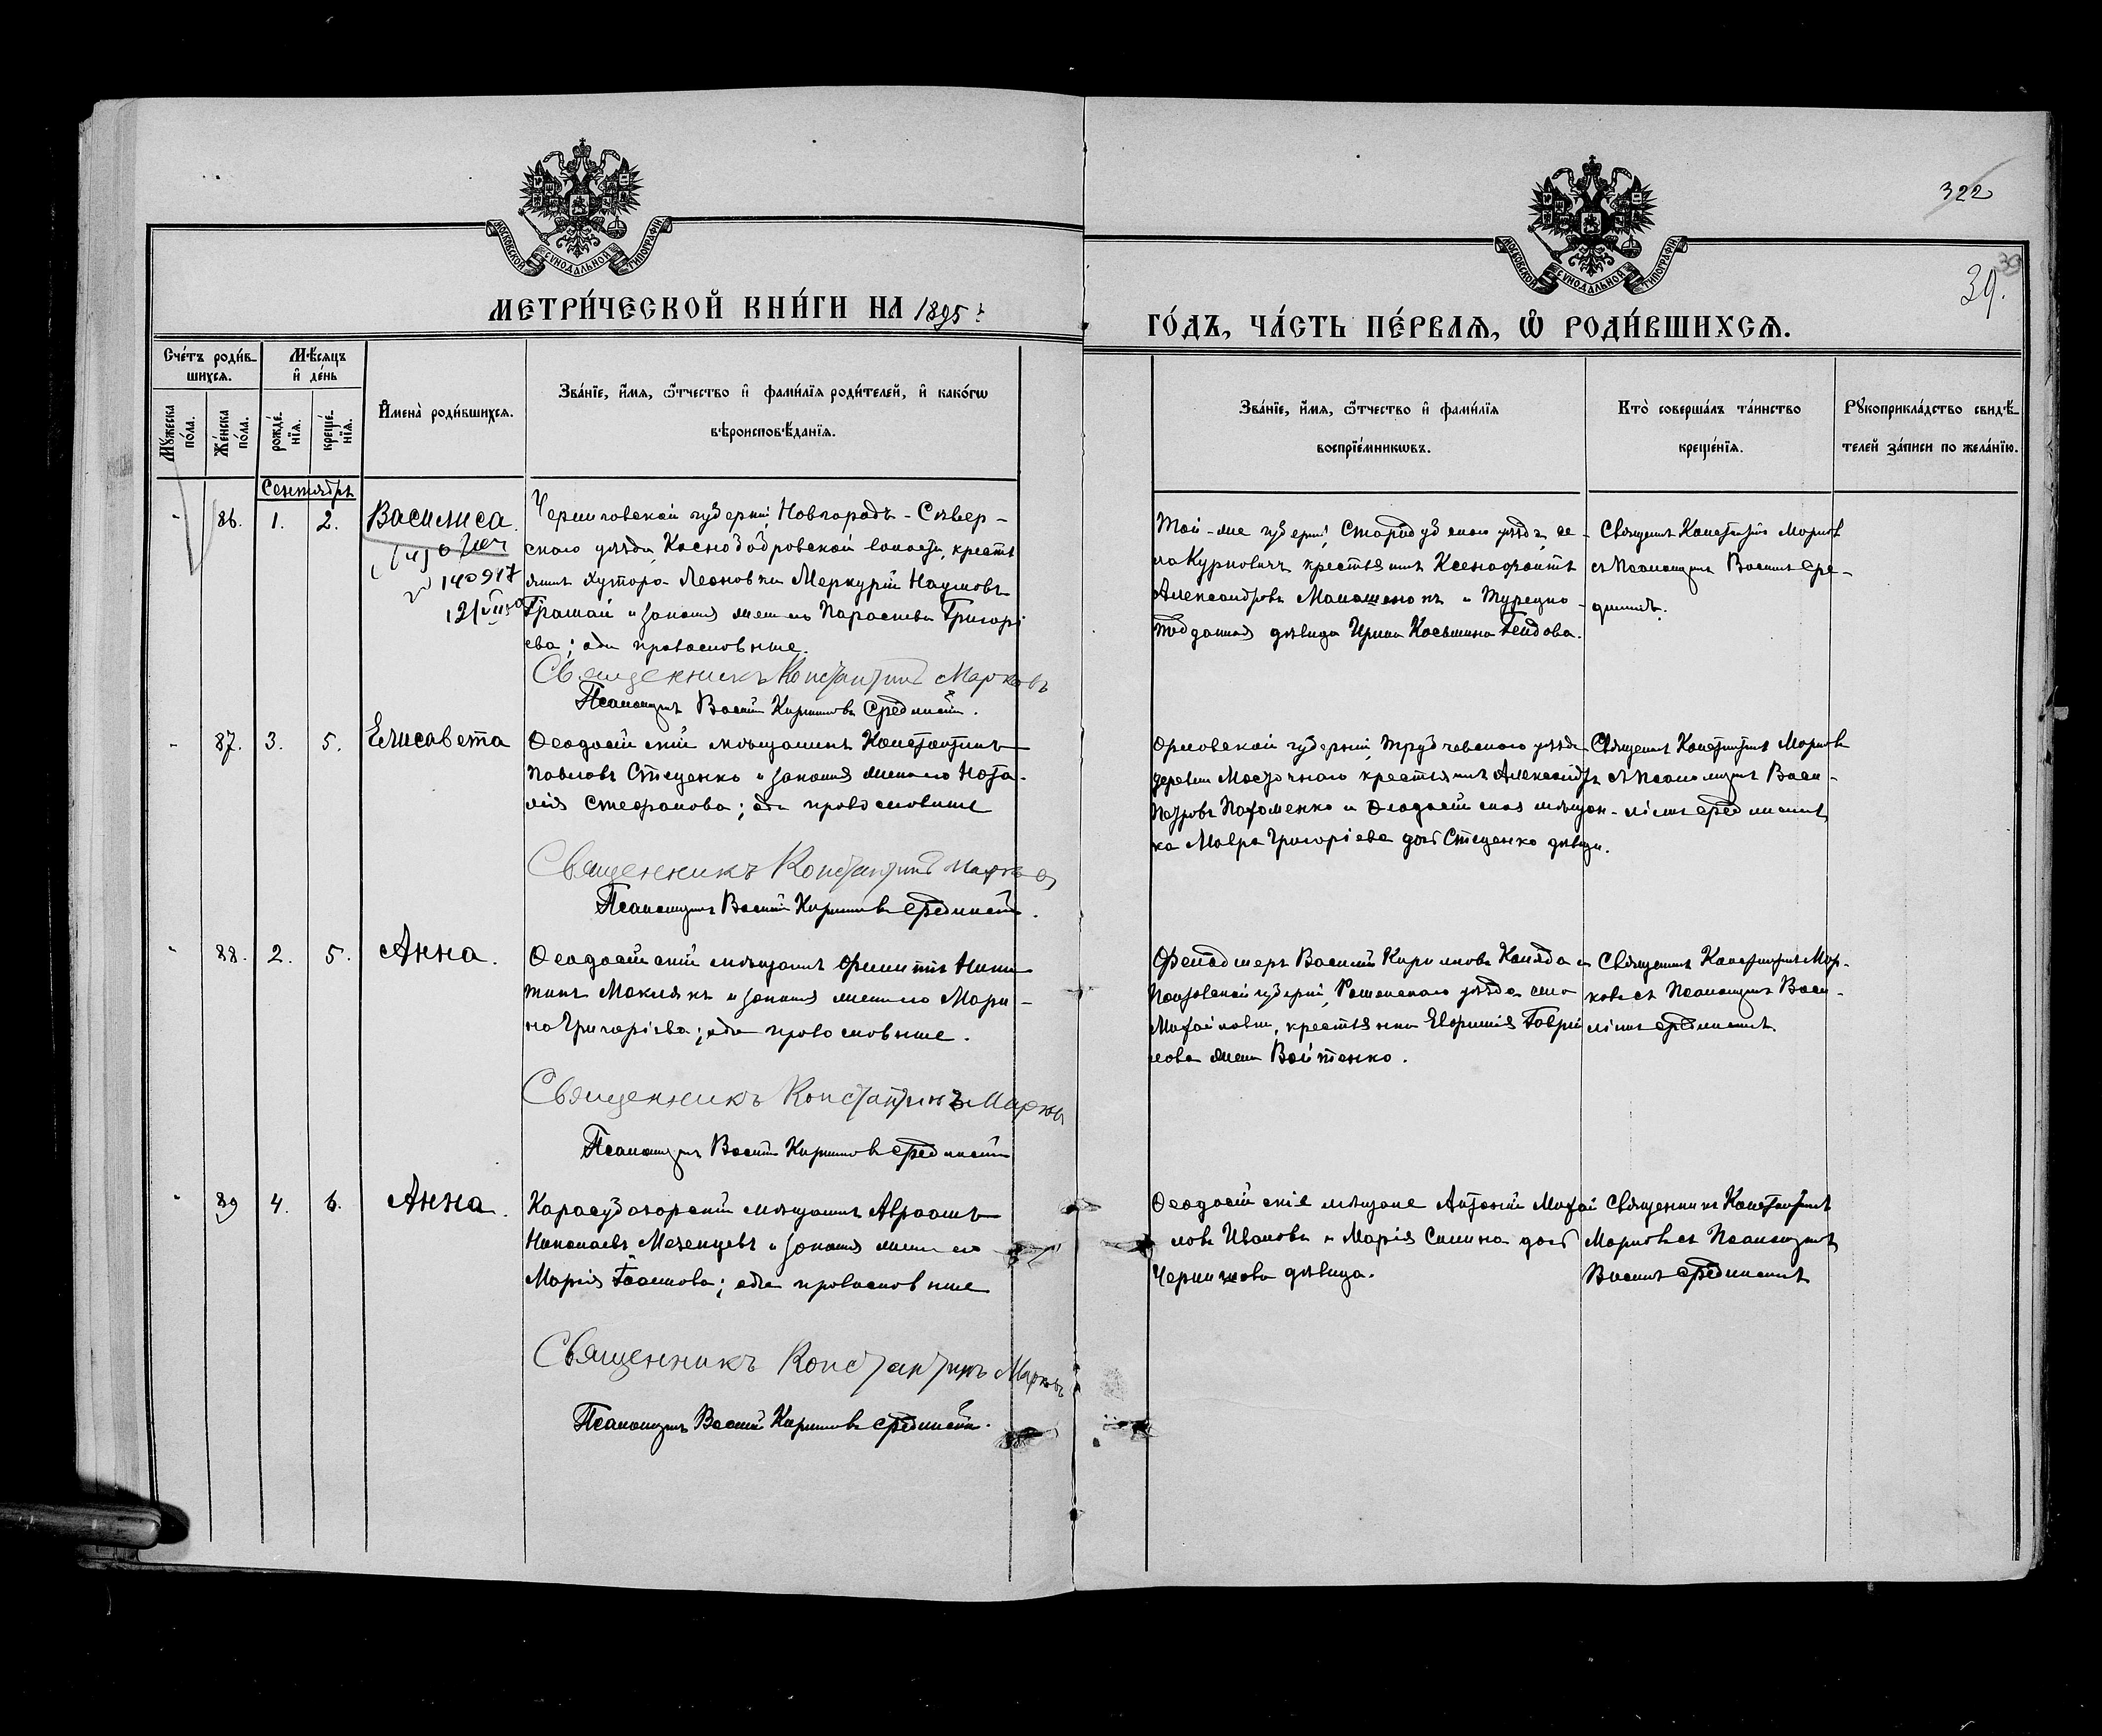 322
39.
39
МОСКОВСКОЙ СѴНОДАЛЬНОЙ ТИПОГРАФІИ
МОСКОВСКОЙ СѴНОДАЛЬНОЙ ТИПОГРАФІИ
МЕТРИ́ЧЕСКОЙ КНИ́ГИ НА 1895 г.
ГО́ДЪ, ЧА́СТЬ ПЕ́РВАѦ, Ѡ҆ РОДИ́ВШИХСѦ.
Сче́тъ роди́в-
шихсѧ.
Мꙋжеска по́ла.
Же́нска по́ла.
Мѣ́сѧцъ
и҆ де́нь
рожде́-
нїѧ.
креще́-
нїѧ.
И҆мена̀ роди́вшихсѧ.
Зва́нїе, и҆́мѧ, ѻ҆́тчество и҆ фами́лїѧ роди́телей, и҆ како́гѡ
вѣроисповѣ́данїѧ.
Зва́нїе, и҆́мѧ, ѻ҆́тчество и҆ фами́лїѧ
воспрїе́мникѡвъ.
Кто̀ соверша́лъ та́инство
креще́нїѧ.
Рꙋкоприкла́дство свидѣ́-
телей за́писи по жела́нїю.
Сентябрь
86. 1. 2. Василиса.
140917
Черниговской губерніи, Новгородъ-Сѣвер-
скаго уѣзда волости, кресть
янинъ хутора Леоновки Меркурій Наумовъ
и законная жена его Параскева Григорі
ева; оба православные.
Священникъ Константинъ Марковъ
Псаломщикъ Василій Кирилловъ Срединскій.
Той-же губерніи, Стародубскаго уѣзда, се-
ла Курковичъ крестьянинъ Ксенофонтъ
Александровъ и Турецко-
подданная дѣвица Ирина Косьмина
Священникъ Константинъ Марковъ
съ псаломщикомъ Василіемъ Сре-
динскимъ.
87. 3. 5. Елисавета
Ѳеодосійскій мѣщанинъ Константинъ
Павловъ Стеценко и законная жена его Ната-
лія Стефанова; оба православные
Священникъ Константинъ Марковъ
Псаломщикъ Василій Кирилловъ Срединскій.
Орловской губерніи, Трубчевскаго уѣзда
деревни крестьянинъ Александръ
Петровъ Пахоменко и Ѳеодосійская мѣщан-
ка Мавра Григоріева дочь Стеценко дѣвица.
Священникъ Константинъ Марковъ
съ псаломщикомъ Васи-
ліемъ Срединскимъ
88. 2. 5. Анна.
Ѳеодосійскій мѣщанинъ Филиппъ Ники
тинъ Маклякъ и законная жена его Мари-
на Григоріева; оба православные.
Священникъ Константинъ Марковъ
Псаломщикъ Василій Кирилловъ Срединскій
Фельдшеръ Василій Кириловъ и
Полтавской губерніи, Роменскаго уѣзда села
Михайловки, крестьянка Евфимія Гаврі
лова жена Войтенко.
Священникъ Константинъ Мар-
ковъ съ псаломщикомъ Васи-
ліемъ Срединскимъ.
89 4. 6. Анна.
Карасубазарскій мѣщанинъ Авраамъ
Николаевъ Мезенцевъ и законная жена его
Марія; оба православные
Священникъ Константинъ Марковъ
Псаломщикъ Василій Кирилловъ Срединскій.
Ѳеодосійскіе мѣщане Антоній Михай
ловъ Ивановъ и Марія Силина дочь
Черникова дѣвица.
Священникъ Константинъ
Марковъ съ псаломщикомъ
Василіемъ Срединскимъ